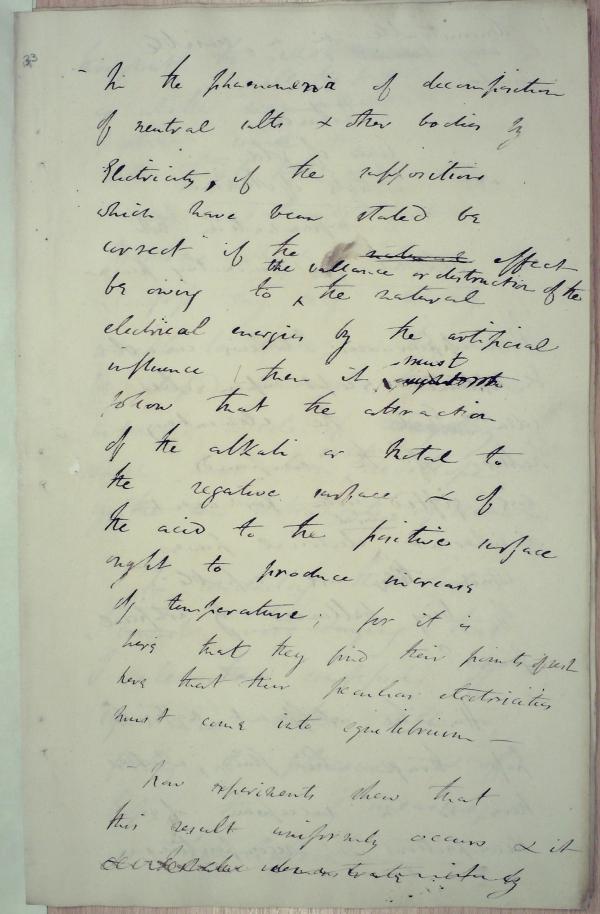 33
- In the phaenomena of decomposition
of neutral salts & other bodies by
Electricity, if the suppositions
which have been stated be
correct if the natural effect
the ballance or destruction of the
be owing to the natural
electrical energies by the artificial
influence then it must
follow that the attraction
of the alkali or Metal to
the negative surface & of
the acid to the positive surface
ought to produce increase
of temperature; for it is
here that they find their points of rest
here that their peculiar electricities
must come into equilibrium —
- Now experiments shew that
this result uniformly occurs & it
demonstrate by